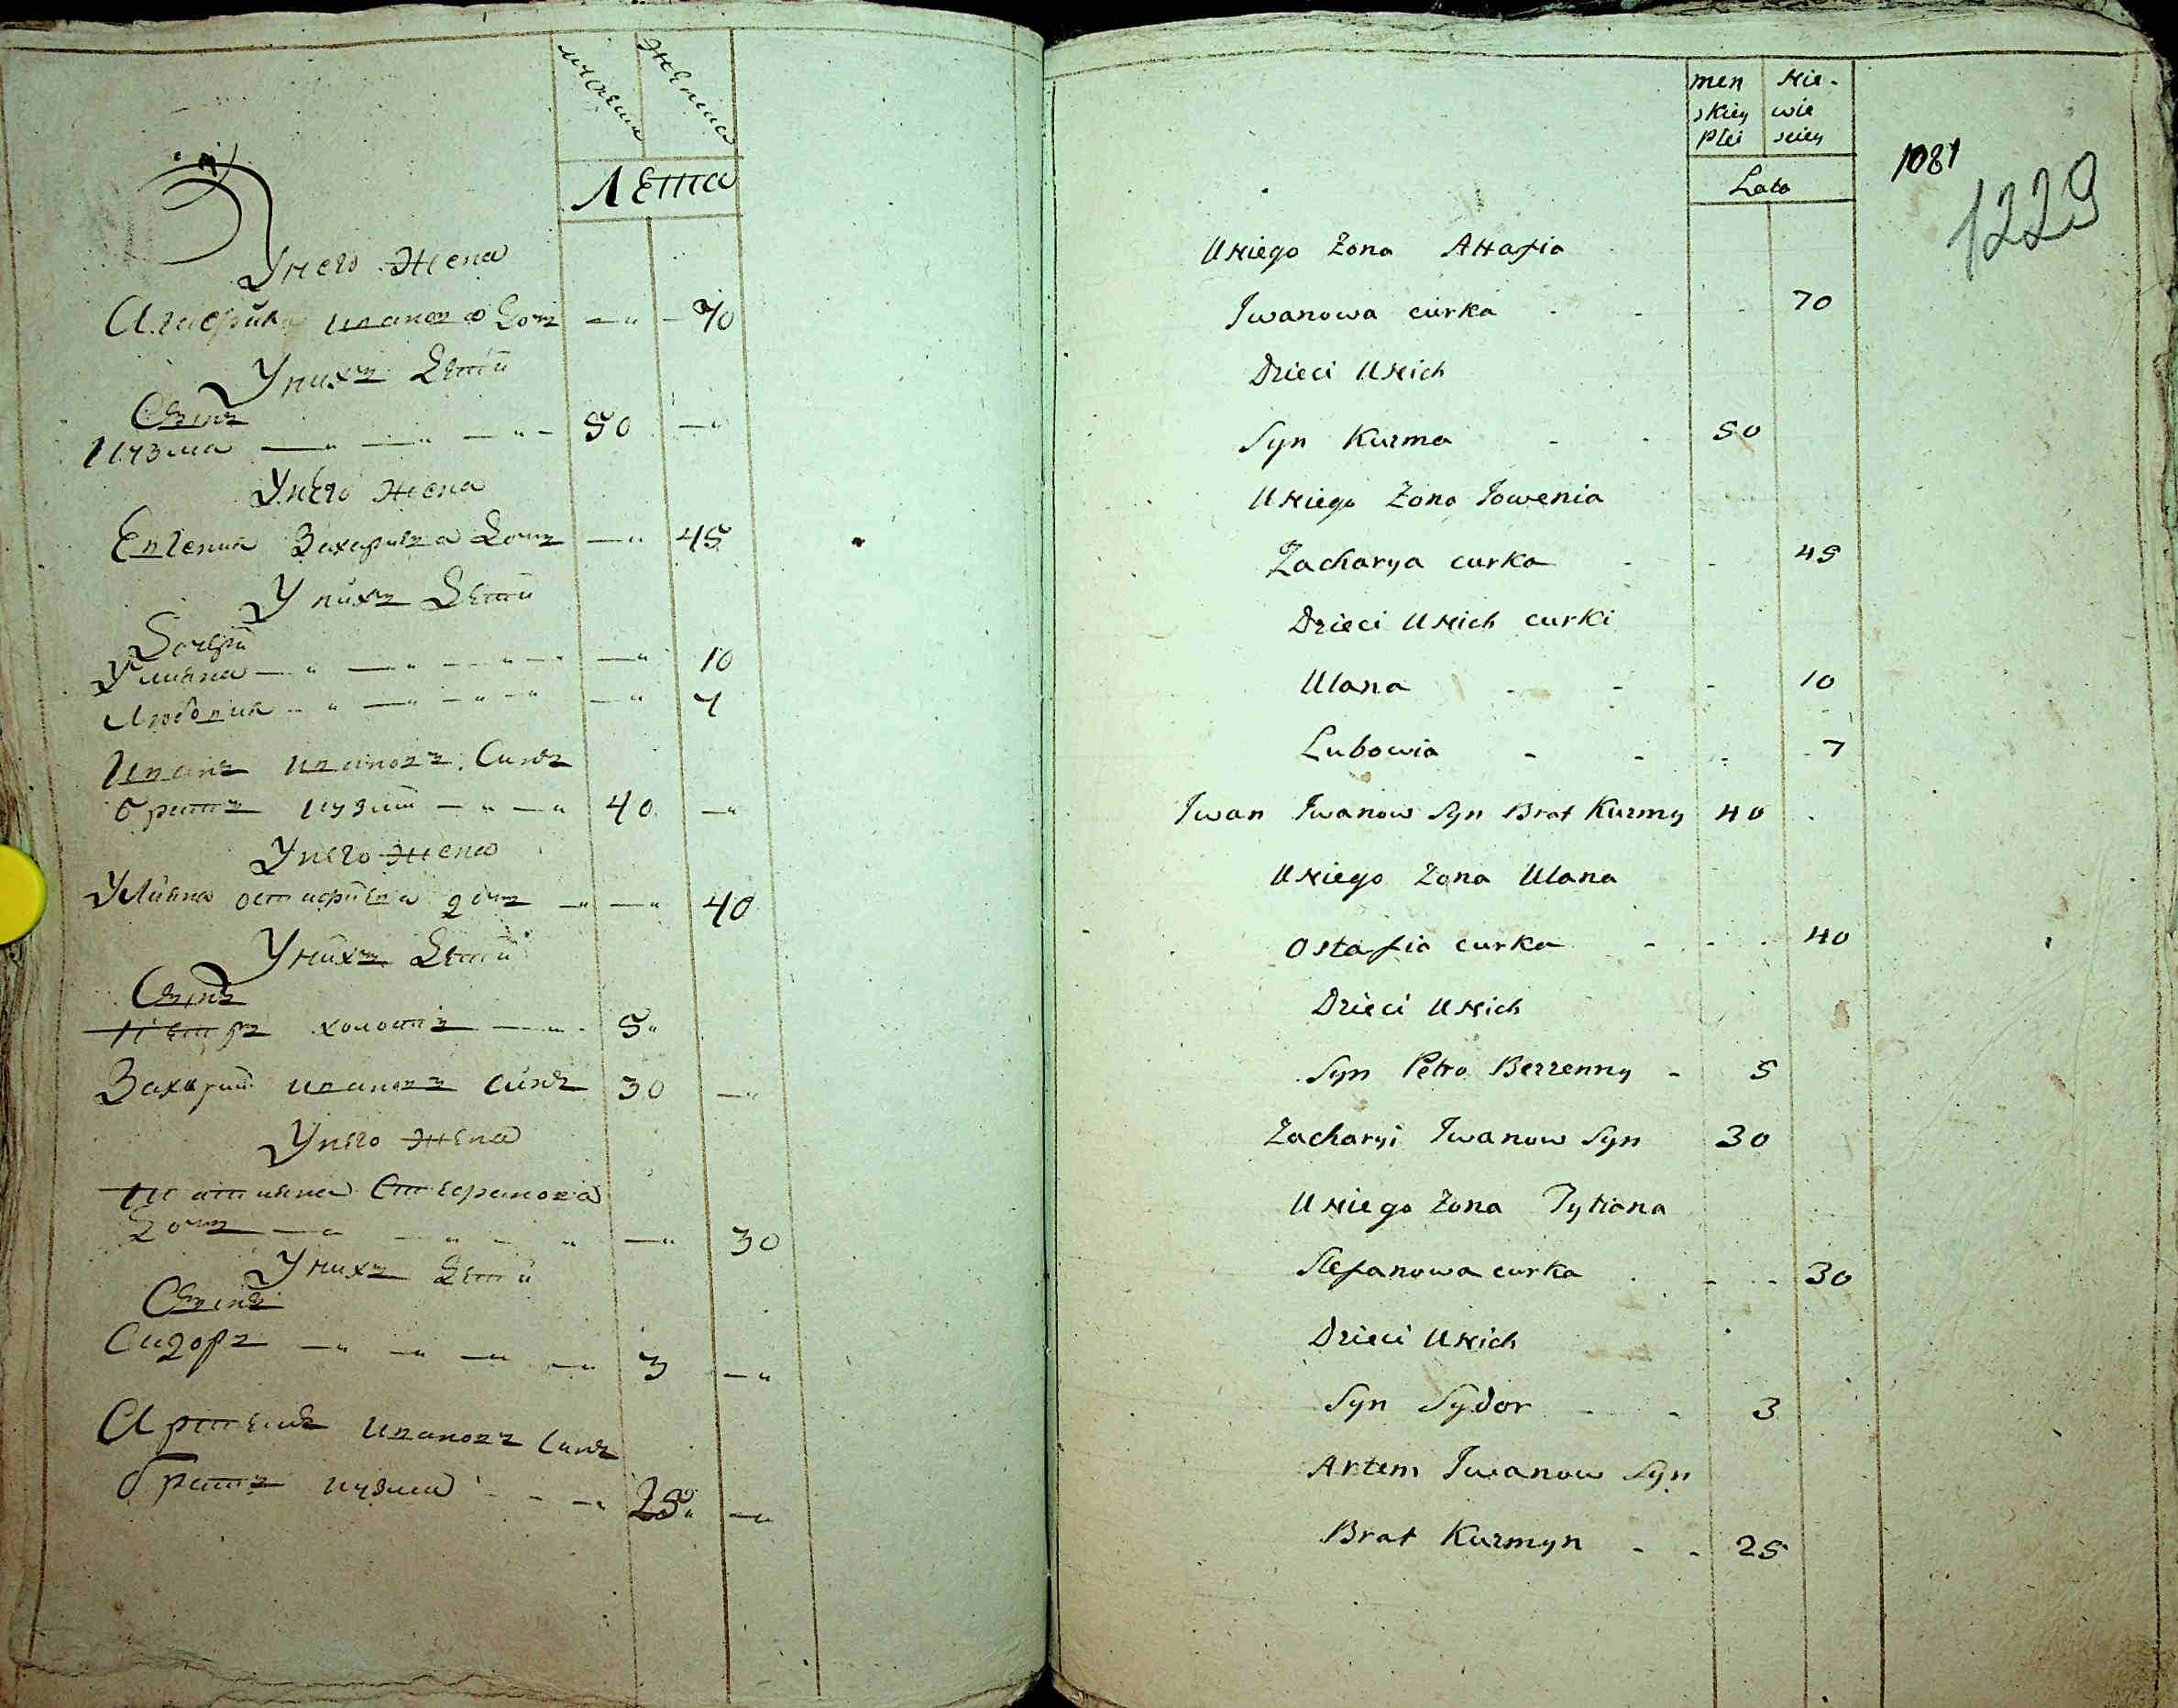 мужеска
женска
Лета
У него жена
Агафия иванова доч 70
У нихъ дети
Сынъ
Кузма 50
У него жена
Евгения Захарьева доч 45
У нихъ дети
Дочери
Улияна 10
Любовия 7
Иванъ ивановъ синъ
братъ кузми 40
У него жена
Улияна остафиева доч 40
У нихъ дети
Сынъ
Петръ холостъ 5
Захарий ивановъ синъ 30
У него жена
Татияна Стефанова
доч 30
У нихъ дети
Сынъ
Сидоръ 3
Артемъ ивановъ синъ
братъ кузми 25
men Nie-
skiey wie
Płci sciey
Lata
1081
1229
U Niego Zona Ahafia
Jwanowa curka 70
Dzieci U Nich
Syn Kuzma 50
U Niego Zona Jowenia
Zacharya curka 45
Dzieci U Nich curki
Ulana 10
Lubowia 7
Jwan Jwanow Syn Brat Kuzmy 40
U Niego Zona Ulana
Ostafia curka 40
Dzieci U Nich
Syn Petro Bezzenny 5
Zacharyi Jwanow Syn 30
U Niego Zona Tytiana
Stefanowa curka 30
Dzieci U Nich
Syn Sydor 3
Artem Jwanow Syn
Brat Kuzmyn 25